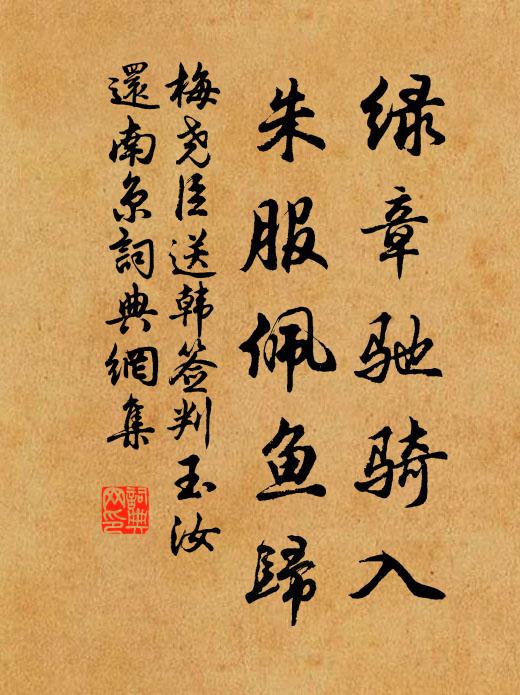 绿章驰骑入
朱服佩鱼歸
梅尧臣送韩签判玉汝
還南京詞典網集
詞典网印